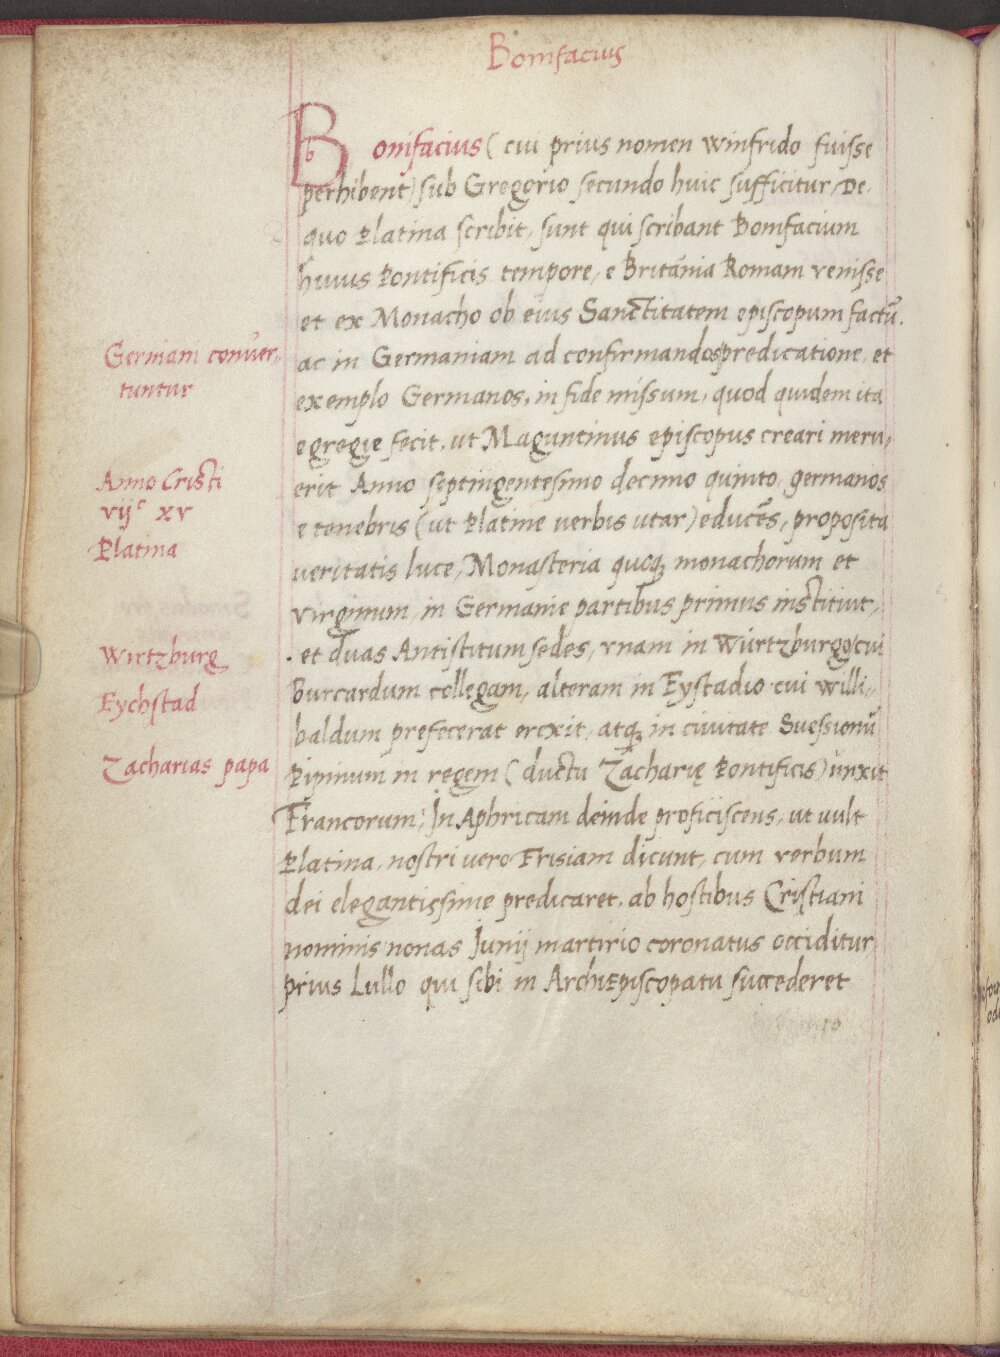 Bonifacius
Bonifacius ( cui prius nomen Winfrido fuisse
perhibent) sub Gregorio secundo huic sufficitur, De
quo Platina scribit, sunt qui scribant Bonifacium
huius Pontificis tempore, e Británia Romam venisse
et ex Monacho ob eius Sanctitatem episcopum factū.
Germani conuer-
tuntur
ac in Germaniam ad confirmandos predicatione, et
exemplo Germanos, in fide missum, quod quidem ita
egregie fecit, ut Maguntinus episcopus creari meru-
Anno Cristi
vijc xv
Platina
erit Anno septingentesimo decimo quinto, germanos
e tenebris ( ut Platine verbis utar) educēs, proposita
veritatis luce, Monasteria quoq; monachorum et
virginum, in Germanie partibus primus instituit,
Wirtzburg
Eychstad
. et duas Antistitum sedes, vnam in Wurtzburgo cui
Burcardum collegam, alteram in Eystadio cui willi-
baldum prefecerat erexit, atq; in ciuitate Suessionū
Zacharias papa
Pipinum in regem ( ductu Zacharię Pontificis) unxit
Francorum, In Aphricam deinde proficiscens, ut uult
Platina, nostri vero Frisiam dicunt, cum verbum
dei elegantissime predicaret, ab hostibus Cristiani
nominis nonas Junij martirio coronatus occiditur
prius Lullo qui sibi in ArchiEpiscopatu succederet